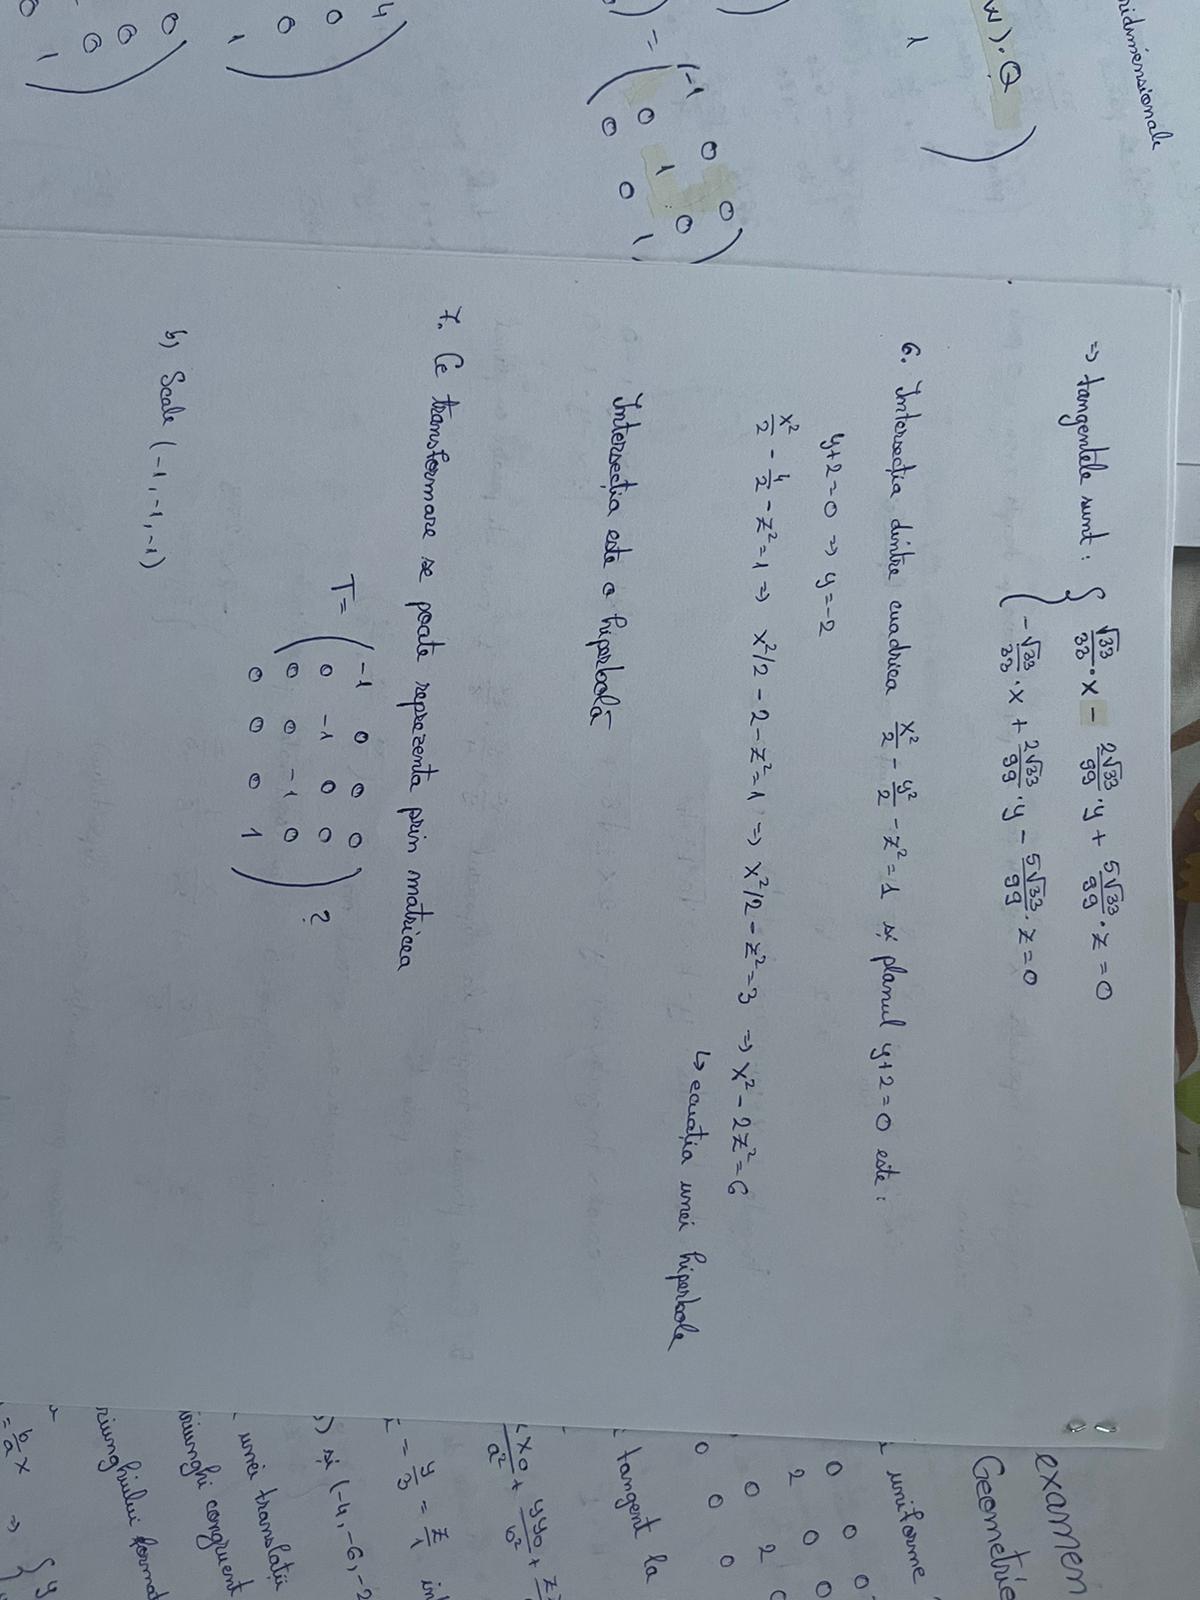 ⇒ tangentele sunt: { √33/33 · x − 2√33/99 · y + 5√33/99 · z = 0
−√33/33 · x + 2√33/99 · y − 5√33/99 · z = 0
6. Intersecția dintre cuadrica x²/2 − y²/2 − z² = 1 și planul y+2=0 este:
y+2=0 ⇒ y=−2
x²/2 − 4/2 − z² = 1 ⇒ x²/2 − 2 − z² = 1 ⇒ x²/2 − z² = 3 ⇒ x² − 2z² = 6
↳ ecuația unei hiperbole
Intersecția este o hiperbolă
7. Ce transformare se poate reprezenta prin matricea
T = ( −1 0 0 0
0 −1 0 0
0 0 −1 0
0 0 0 1 ) ?
b) Scale (−1, −1, −1)
idimensionale
) · Q
1 )
) = ( −1 0 0
0 1 0
0 0 1 )
4
0 0
1 )
0
0 0
1 )
examen
Geometrie
uniforme
0 0 0
2 0 0
0 2 0
0 0 0
tangent la
xx₀/a² + yy₀/b² +
= y/3 = z/1
) și (−4, −6, −2
unei translații
triunghi congruent
triunghiului format
= b/a x ⇒ { y